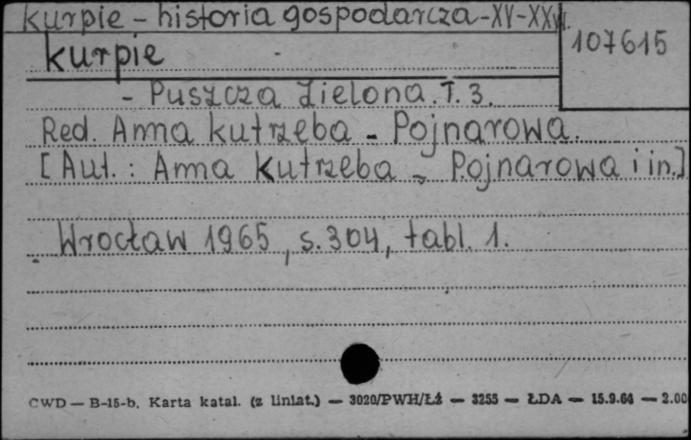 Kurpie - historia gospodarcza - XV-XX w.
107615
Kurpie
- Puszcza Zielona. T. 3.
Red. Anna Kutrzeba - Pojnarowa.
[Aut.: Anna Kutrzeba - Pojnarowa i in.]
Wrocław 1965, s. 304, tabl. 1.
CWD — B-15-b. Karta katal. (z liniat.) — 3020/PWH/Łż — 3255 — ŁDA — 15.9.64 — 2.00